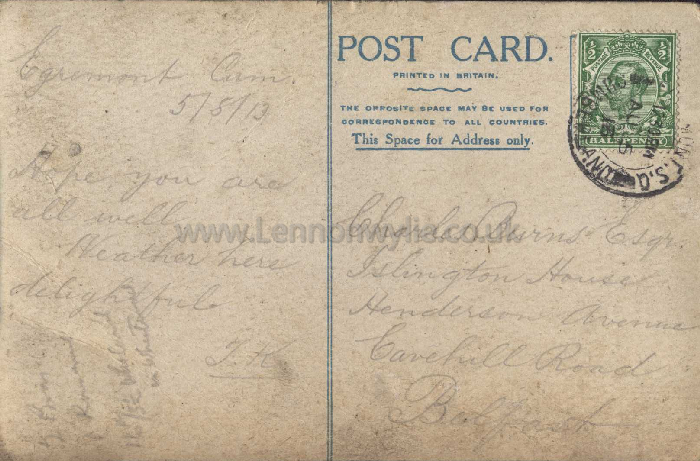 Egremont Cum.
5/5/13
Hope you are
all well
Weather here
delightful
J.K.
POST CARD.
PRINTED IN BRITAIN.
THE OPPOSITE SPACE MAY BE USED FOR
CORRESPONDENCE TO ALL COUNTRIES.
This Space for Address only.
½ ½
HALFPENNY
S.O
www.Lennonwylie.co.uk
Charles Burns Esqr.
Islington House
Henderson Avenue
Cavehill Road
Belfast